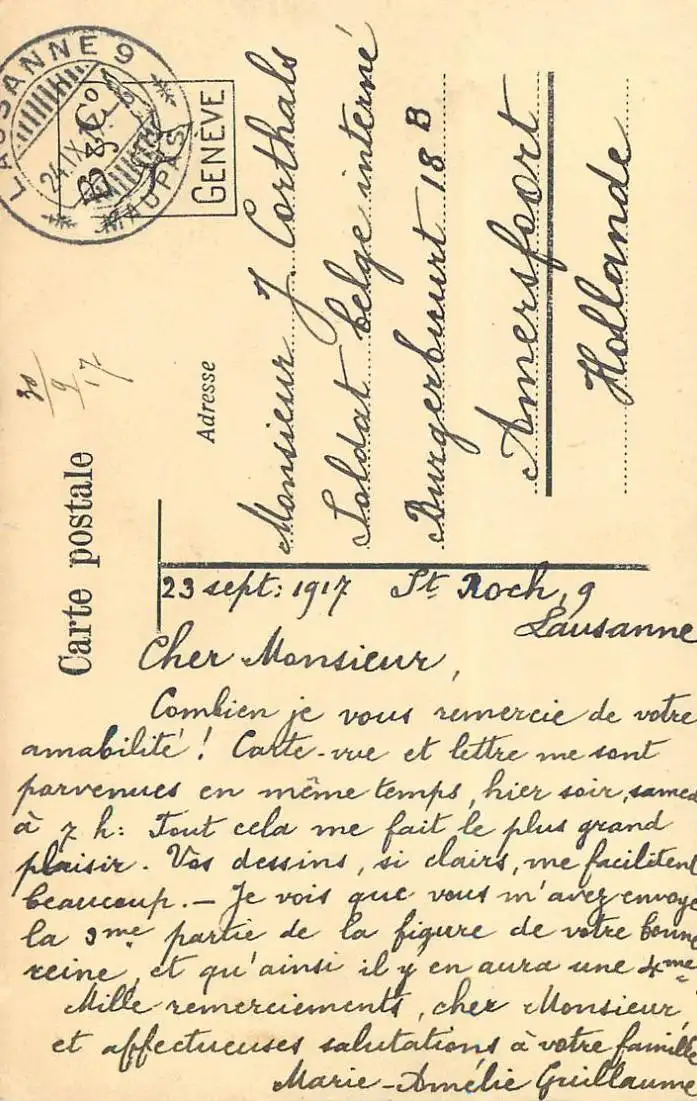 LAUSANNE 9
24.IX.17
MAUPAS
B & Co
GENÈVE
30/9 17
Carte postale
Adresse
Monsieur J. Corthals
Soldat belge interné
Burgerbuurt 18 B
Amersfoort
Hollande
23 sept: 1917 St. Roch, 9
Lausanne
Cher Monsieur,
Combien je vous remercie de votre
amabilité! Carte-vue et lettre me sont
parvenues en même temps, hier soir, samed
à 7 h: Tout cela me fait le plus grand
plaisir. Vos dessins, si clairs, me facilitent
beaucoup. — Je vois que vous m'avez envoyé
la 3me partie de la figure de votre bonne
reine, et qu'ainsi il y en aura une 4me
Mille remerciements, cher Monsieur,
et affectueuses salutations à votre famille
Marie-Amélie Guillaume